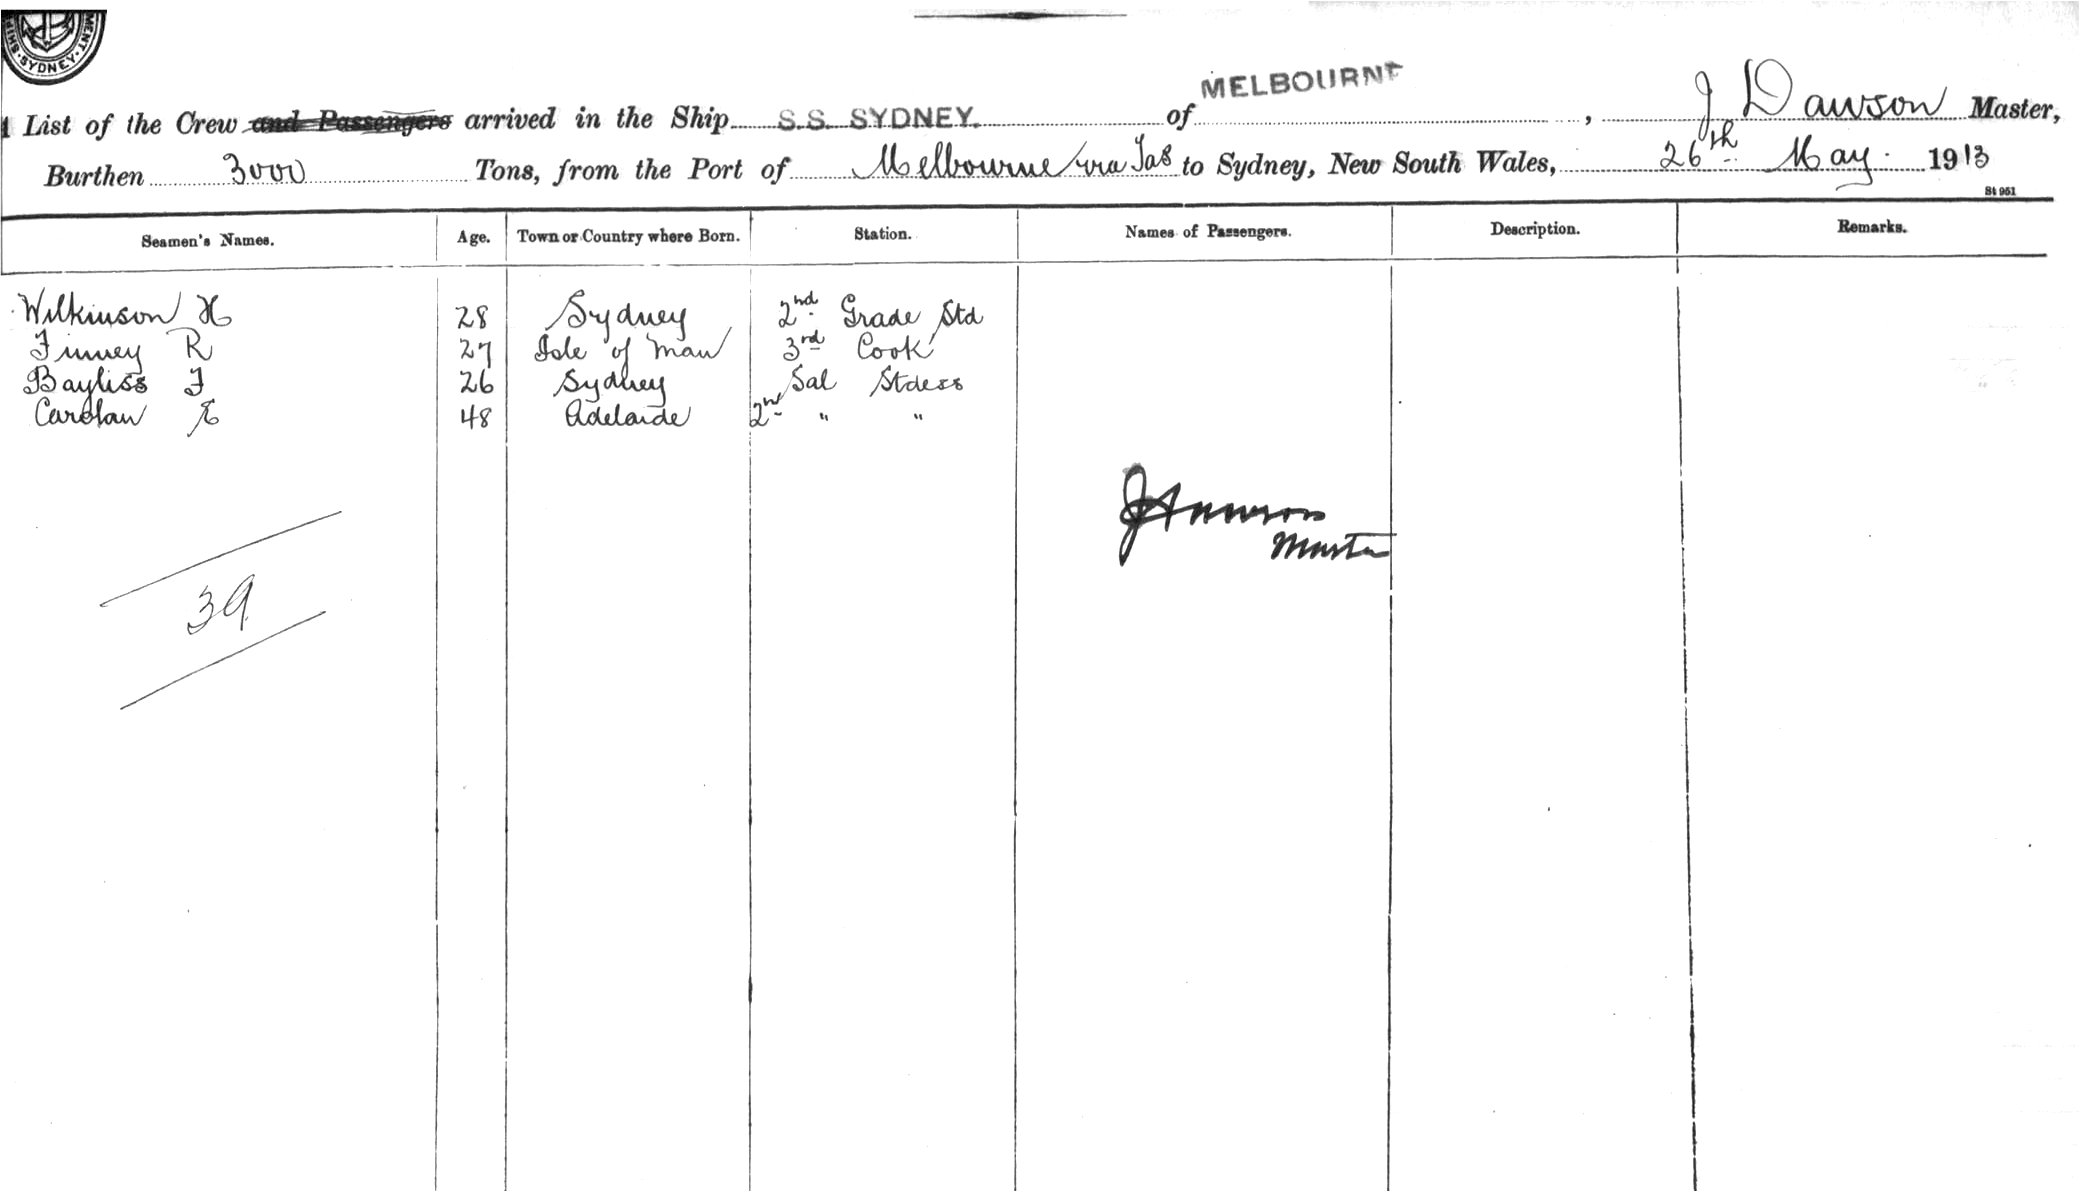 MENT · SYDNEY · SHIP
MELBOURNE
A List of the Crew and Passengers arrived in the Ship S.S. SYDNEY. of , J Dawson Master,
Burthen 3000 Tons, from the Port of Melbourne via Tas to Sydney, New South Wales, 26th May 1913
St 951
Seamen's Names. Age. Town or Country where Born. Station. Names of Passengers. Description. Remarks.
Wilkinson H 28 Sydney 2nd Grade Std
Finney R 27 Isle of Man 3rd Cook
Bayliss F 26 Sydney Sal Stdess
Carolan E 48 Adelaide 2nd " "
J Dawson
Master
39